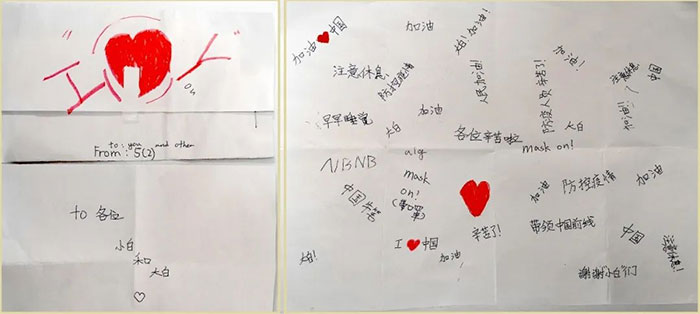 "I ❤ Y"
ou
to: you and other
From: 5(2)
to 各位
小白
和
大白
♡
加油❤中国
加油
大白！加油！
注意休息！
防控疫情
人民加油！
防疫人员辛苦了！
加油！
注意休息
中国
早早睡觉
大白
加油
各位辛苦啦
大白
mask on!
NBNB
mask
on!
中国
防控疫情
加油
加油
I ❤ 中国
加油
辛苦了！
带领中国前线
中国
注意休息！
大白！
谢谢"小白"们